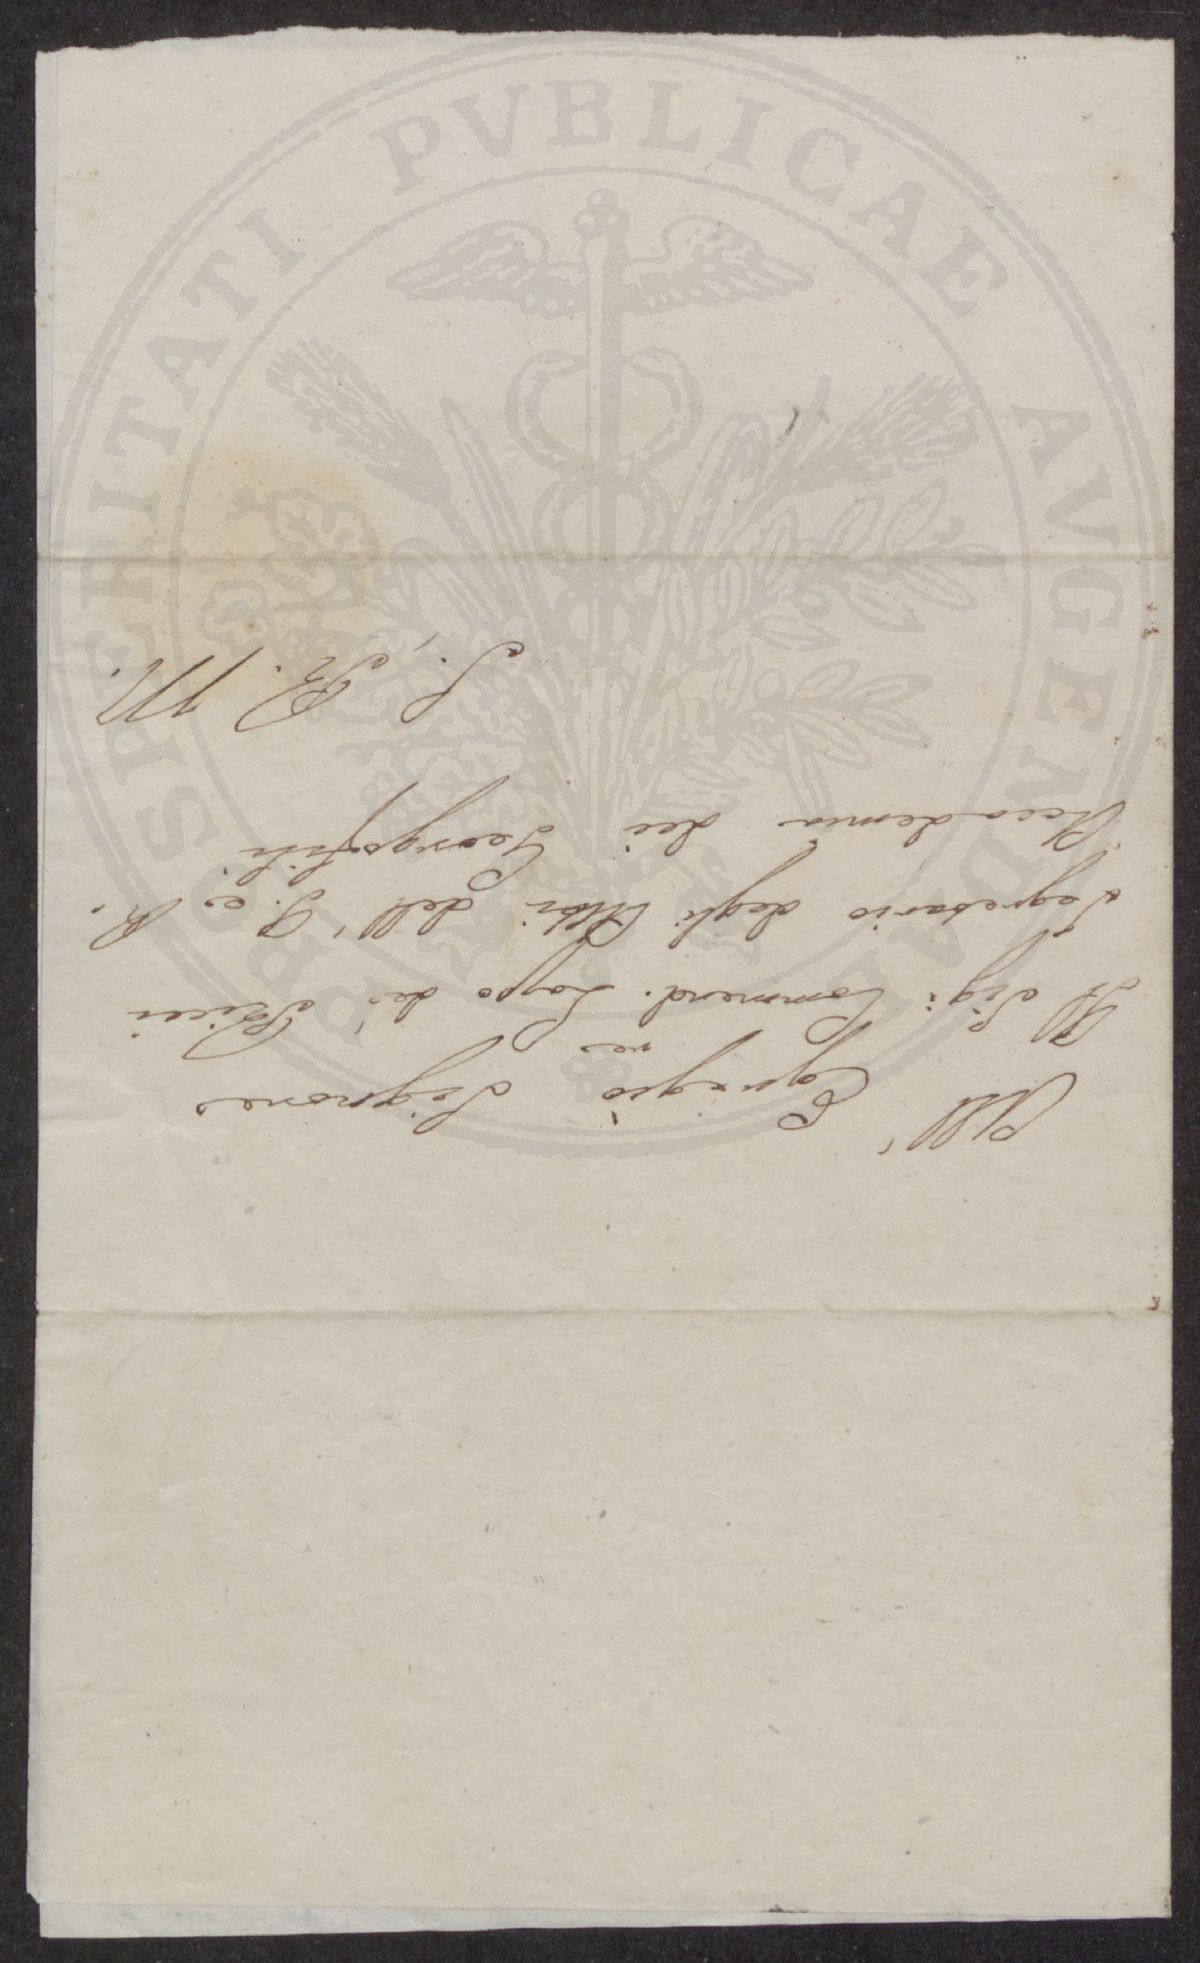 All' Egregio Signore
Il Sig.re Commend. Lapo de' Ricci
Segretario degli Atti dell' I. e R.
Accademia dei Georgofili
S. P. M.
PROSPERITATI PVBLICAE AVGENDAE